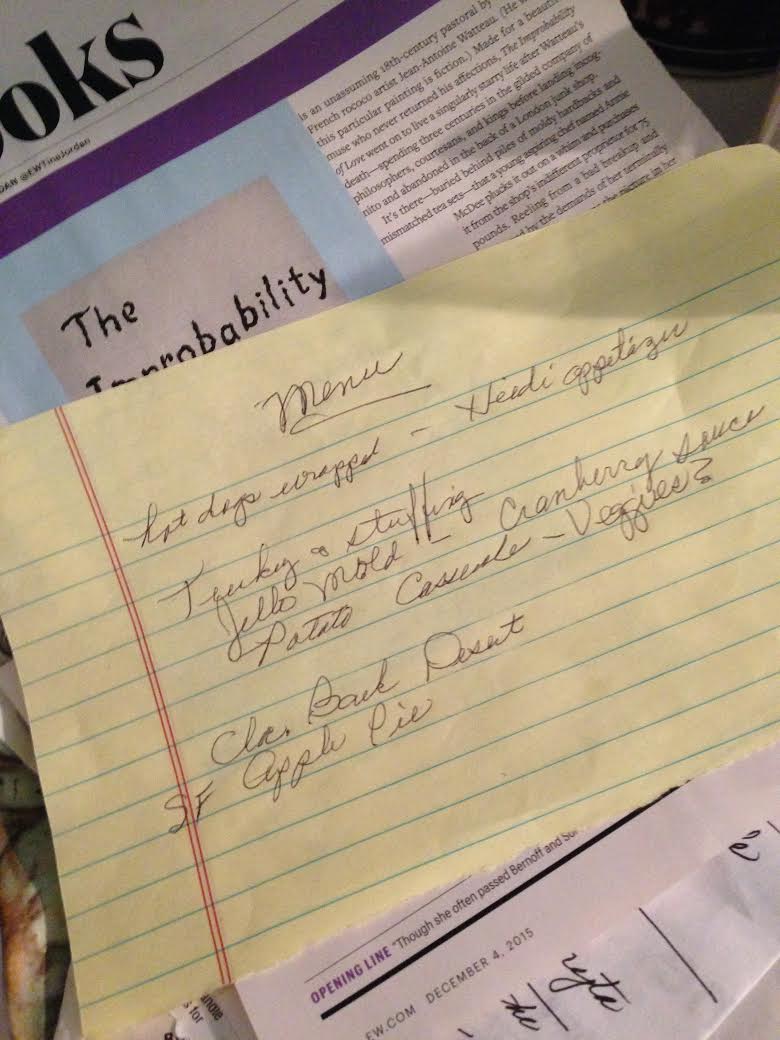 ooks
DAN @EWTinaJordan
is an unassuming 18th-century pastoral by
French rococo artist Jean-Antoine Watteau. (He w
this particular painting is fiction.) Made for a beauti
muse who never returned his affections, The Improbability
of Love went on to live a singularly starry life after Watteau's
death—spending three centuries in the gilded company of
philosophers, courtesans, and kings before landing incog-
nito and abandoned in the back of a London junk shop.
It's there—buried behind piles of moldy hardbacks and
mismatched tea sets—that a young aspiring chef named Annie
McDee plucks it out on a whim and purchases
it from the shop's indifferent proprietor for 75
pounds. Reeling from a bad breakup and
d by the demands of her terminally
the picture in her
The
Improbability
Menu
hot dogs wrapped - Heidi appetizer
Turkey & stuffing
Jello mold - Cranberry sauce
Potato Casserole - Veggies?
Choc. Bark Desert
SF Apple Pie
OPENING LINE "Though she often passed Bernoff and So
EW.COM DECEMBER 4, 2015
s for